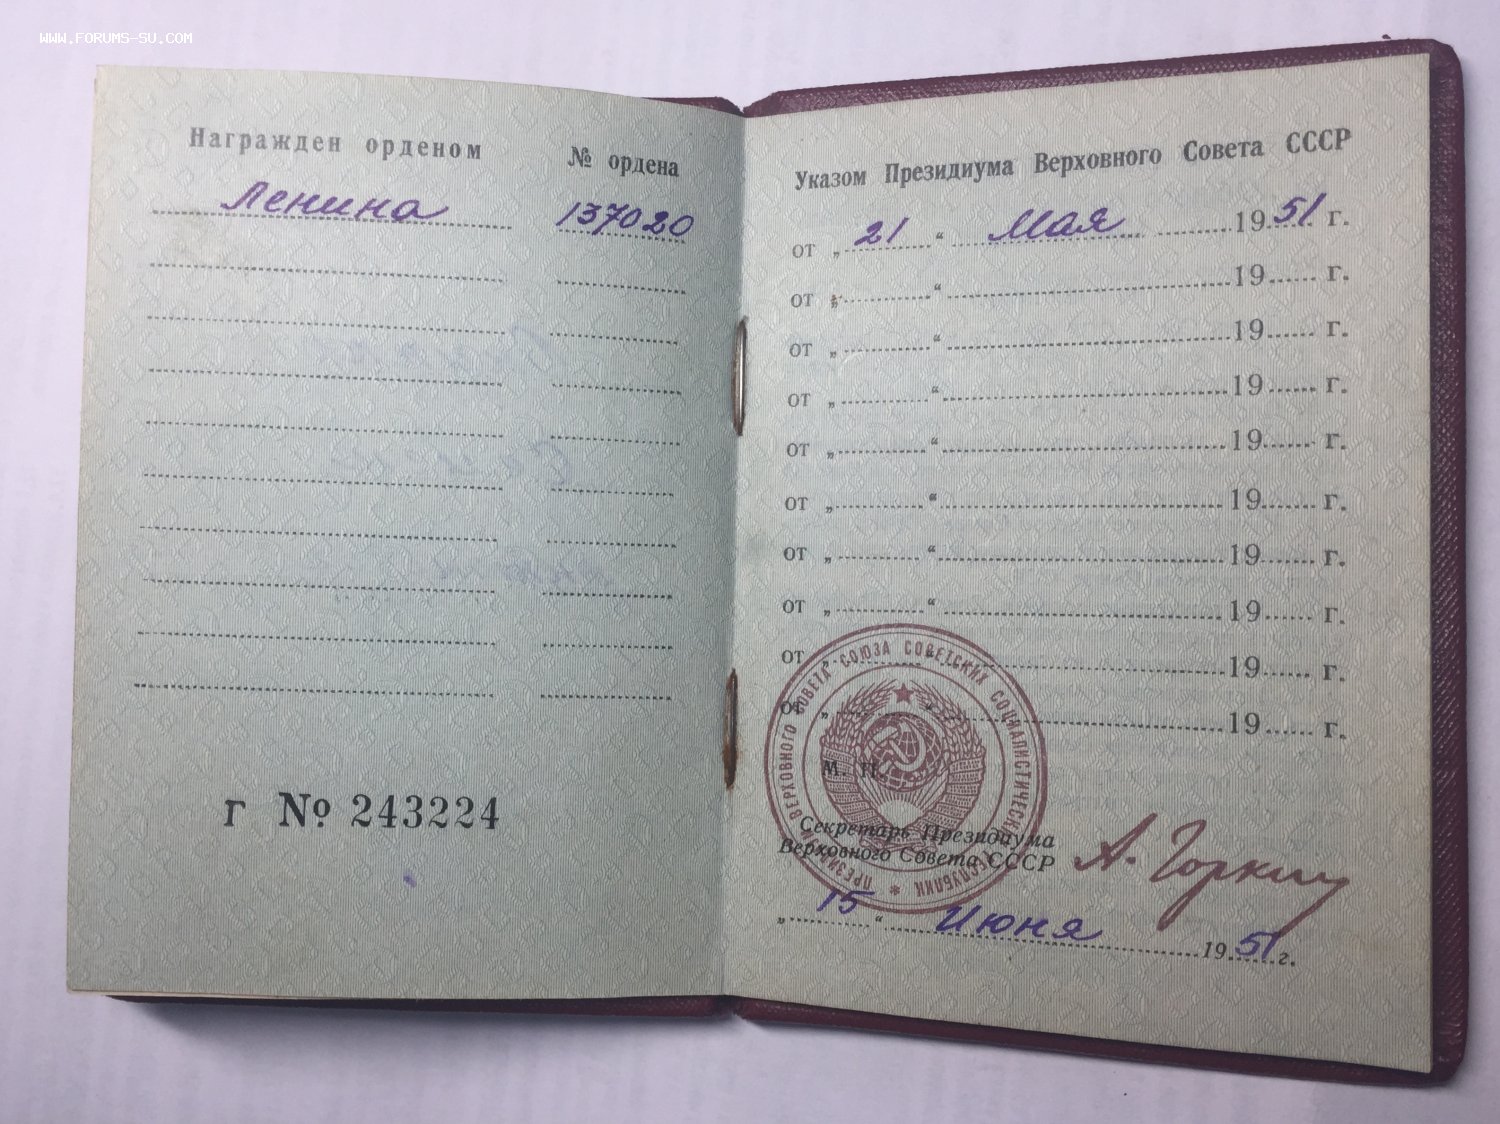 WWW.FORUMS-SU.COM
Награжден орденом № ордена
Ленина 137020
г № 243224
Указом Президиума Верховного Совета СССР
от „21“ Мая 1951 г.
от „ “ 19 г.
от „ “ 19 г.
от „ “ 19 г.
от „ “ 19 г.
от „ “ 19 г.
от „ “ 19 г.
от „ “ 19 г.
от „ “ 19 г.
от „ “ 19 г.
ПРЕЗИДИУМ ВЕРХОВНОГО СОВЕТА СОЮЗА СОВЕТСКИХ СОЦИАЛИСТИЧЕСКИХ РЕСПУБЛИК *
М. П.
Секретарь Президиума
Верховного Совета СССР
А. Горкин
„15“ Июня 1951 г.